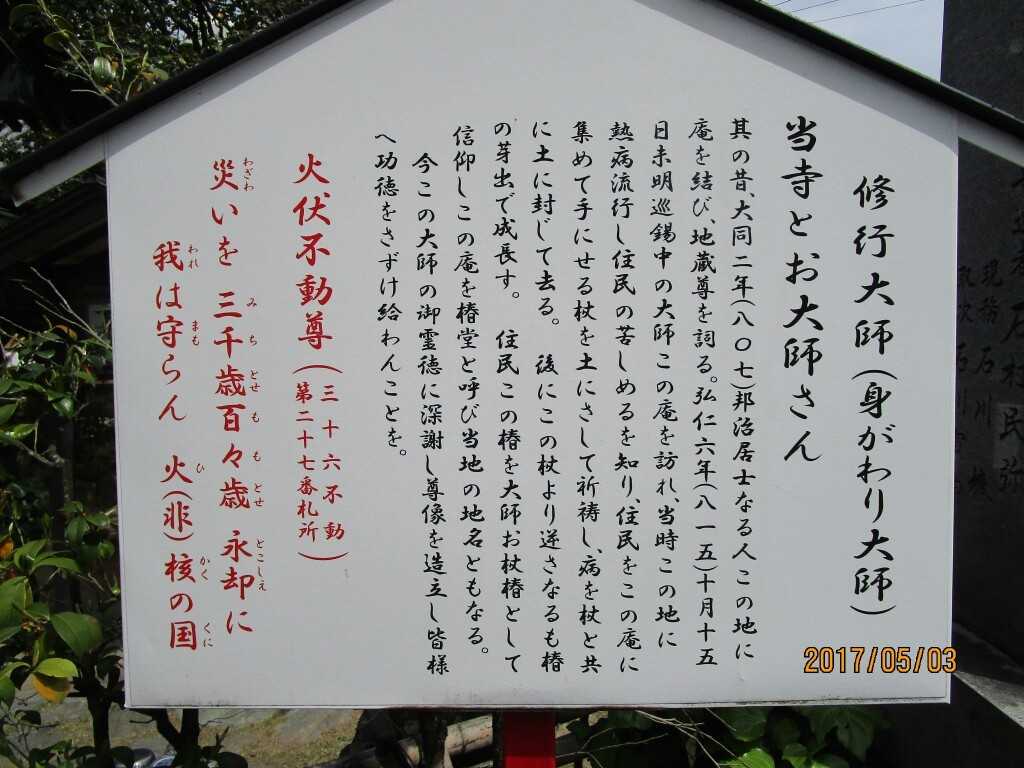 修行大師(身がわり大師)
当寺とお大師さん
其の昔、大同二年(八〇七)邦治居士なる人この地に
庵を結び、地蔵尊を祠る。弘仁六年(八一五)十月十五
日未明巡錫中の大師この庵を訪れ、当時この地に
熱病流行し住民の苦しめるを知り、住民をこの庵に
集めて手にせる杖を土にさして祈祷し、病を杖と共
に土に封じて去る。 後にこの杖より逆さなるも椿
の芽出で成長す。 住民この椿を大師お杖椿として
信仰しこの庵を椿堂と呼び当地の地名ともなる。
今この大師の御霊徳に深謝し尊像を造立し皆様
へ功徳をさずけ給わんことを。
火伏不動尊(三十六不動第二十七番札所)
災いを 三千歳百々歳 永却に
わざわ み ち とせ も も とせ とこしえ
我は守らん 火(非)核の国
われ まも ひ かく くに
2017/05/03